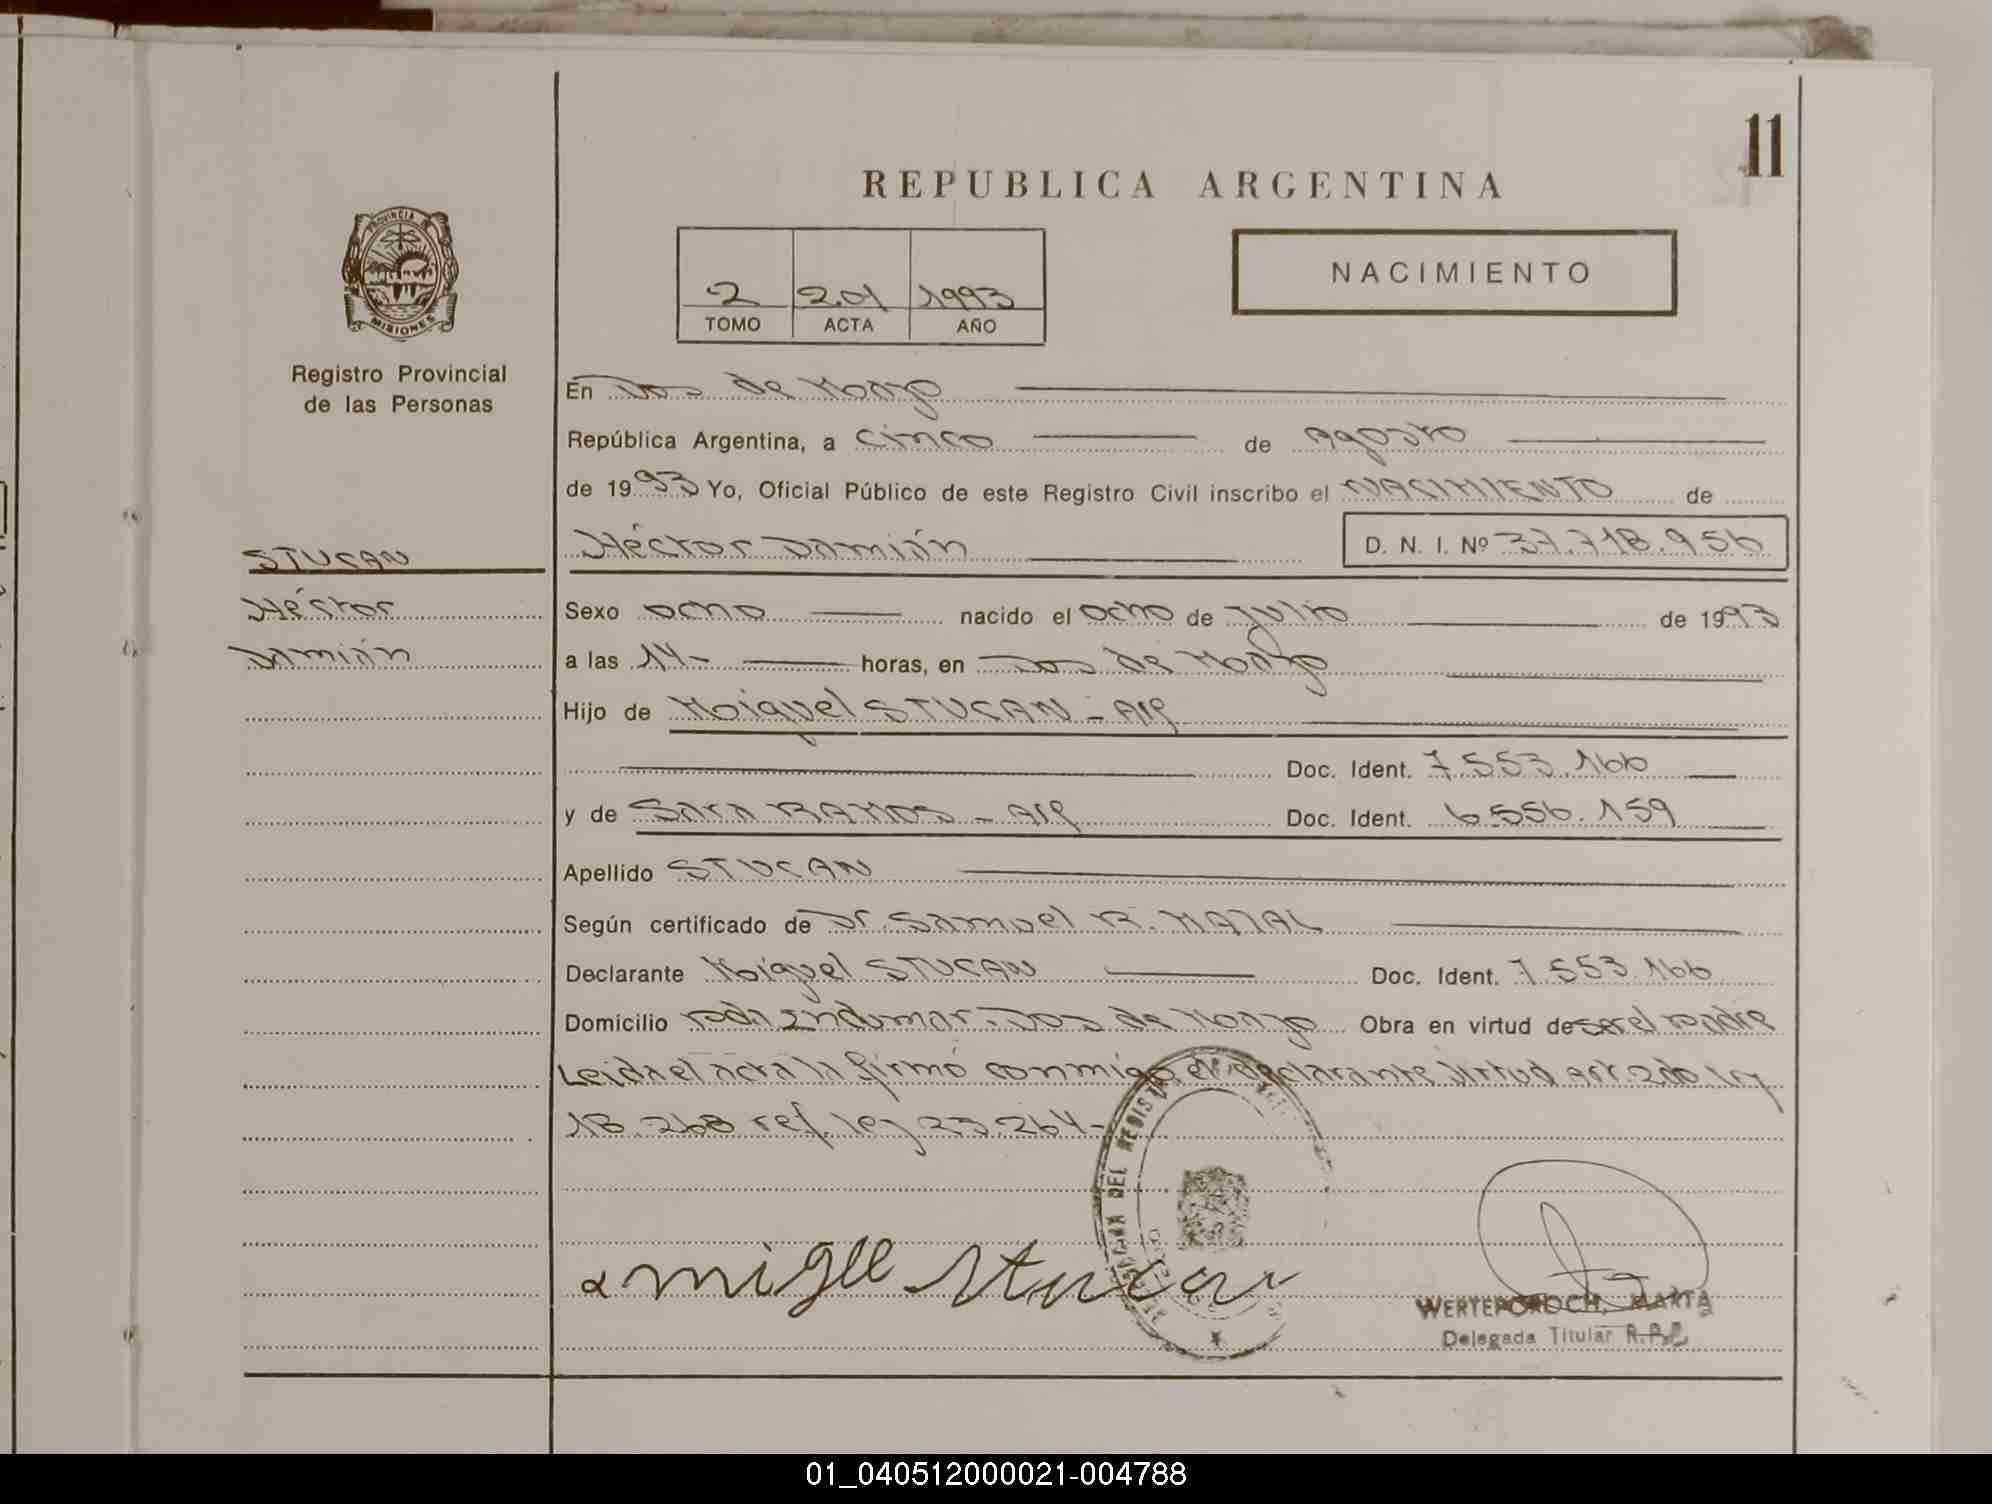 11
REPUBLICA ARGENTINA
PROVINCIA DE
MISIONES
Registro Provincial
de las Personas
2 201 1993
TOMO ACTA AÑO
NACIMIENTO
En Dos de Mayo
República Argentina, a cinco de Agosto
de 1993 Yo, Oficial Público de este Registro Civil inscribo el NACIMIENTO de
STUCAN
Héctor Damián D. N. I. Nº 37.718.956
Héctor
Sexo nacido el ocho de Julio de 1993
Damián
a las 14- horas, en Dos de Mayo
Hijo de Miguel STUCAN - Arg
Doc. Ident. 7.553.166
y de Sara RAMOS - Arg Doc. Ident. 6.556.159
Apellido STUCAN
Según certificado de Dr. Samuel R.
Declarante Miguel STUCAN Doc. Ident. 7.553.166
Domicilio Dos de Mayo Obra en virtud de ser el padre
Leida el acta la firmó conmigo el declarante virtud Art. 2do ley
18.248 ref. ley 23.264-
DEL REGISTRO
migel Stucan
WERTEPOROCH, MARTA
Delegada Titular R.P.P.
01_040512000021-004788